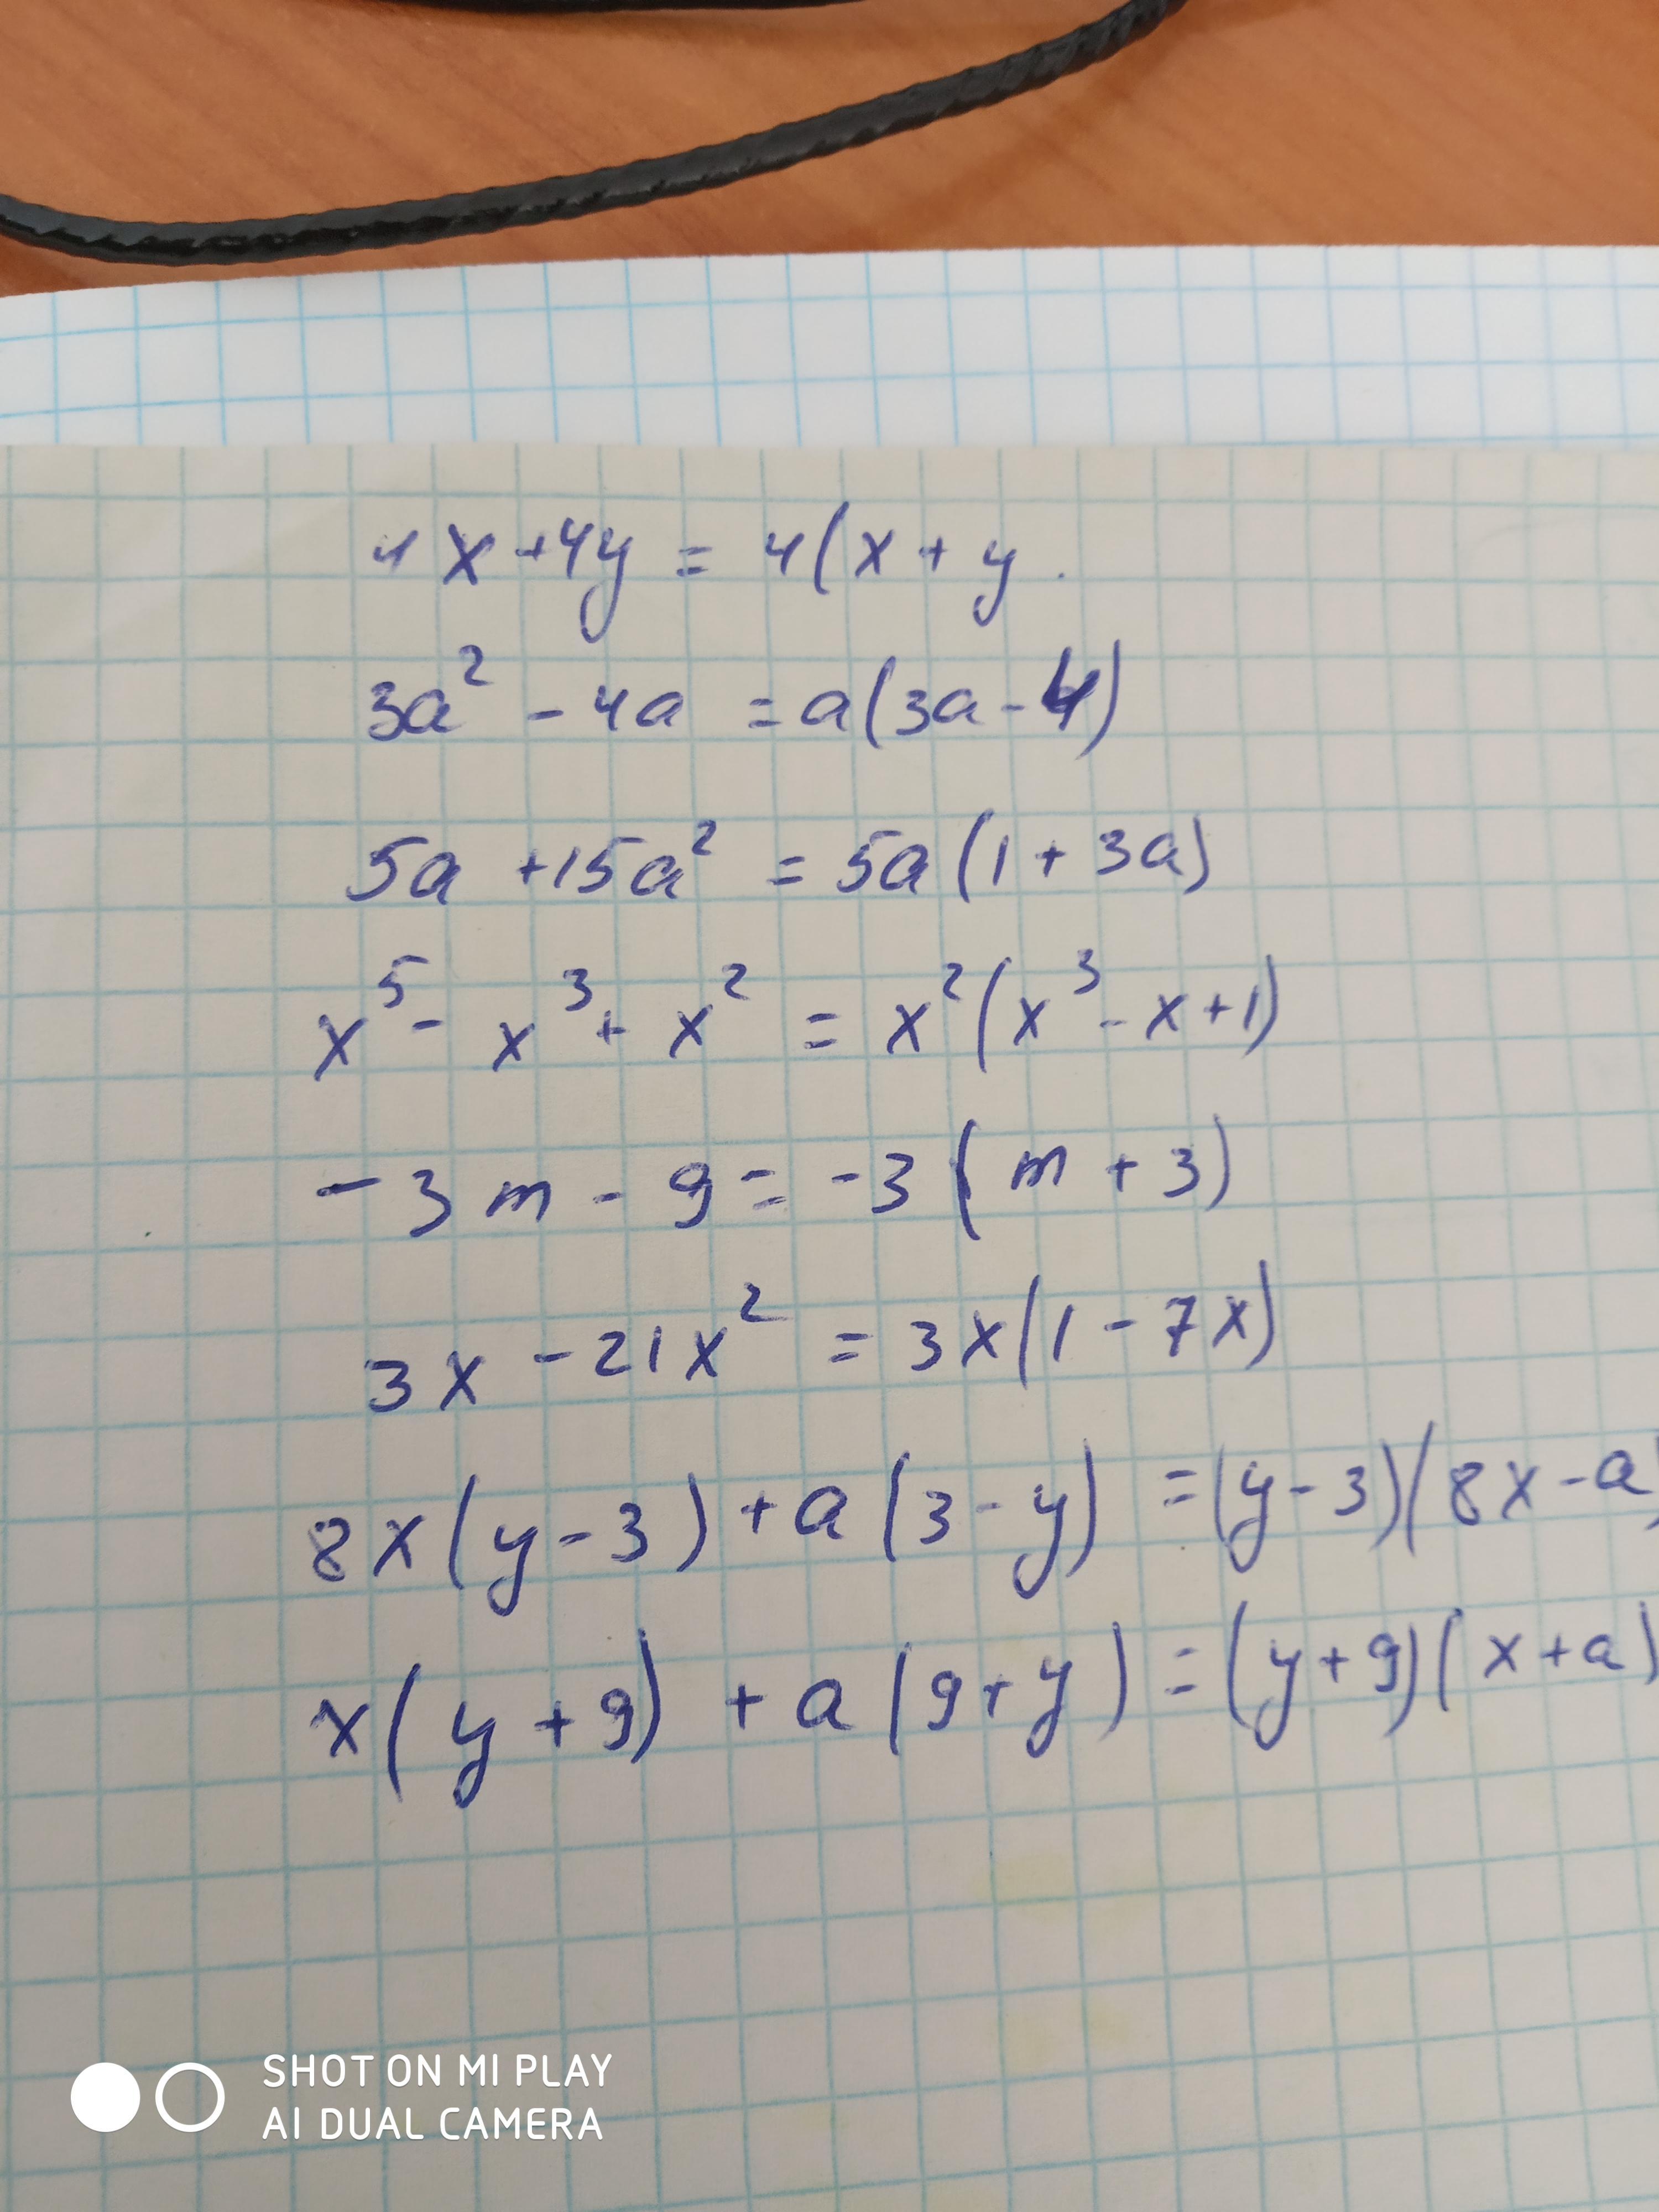 4x + 4y = 4(x + y.
3a² - 4a = a(3a - 4)
5a + 15a² = 5a(1 + 3a)
x⁵ - x³ + x² = x²(x³ - x + 1)
-3m - 9 = -3(m + 3)
3x - 21x² = 3x(1 - 7x)
8x(y - 3) + a(3 - y) = (y - 3)(8x - a)
x(y + 9) + a(9 + y) = (y + 9)(x + a)
SHOT ON MI PLAY
AI DUAL CAMERA